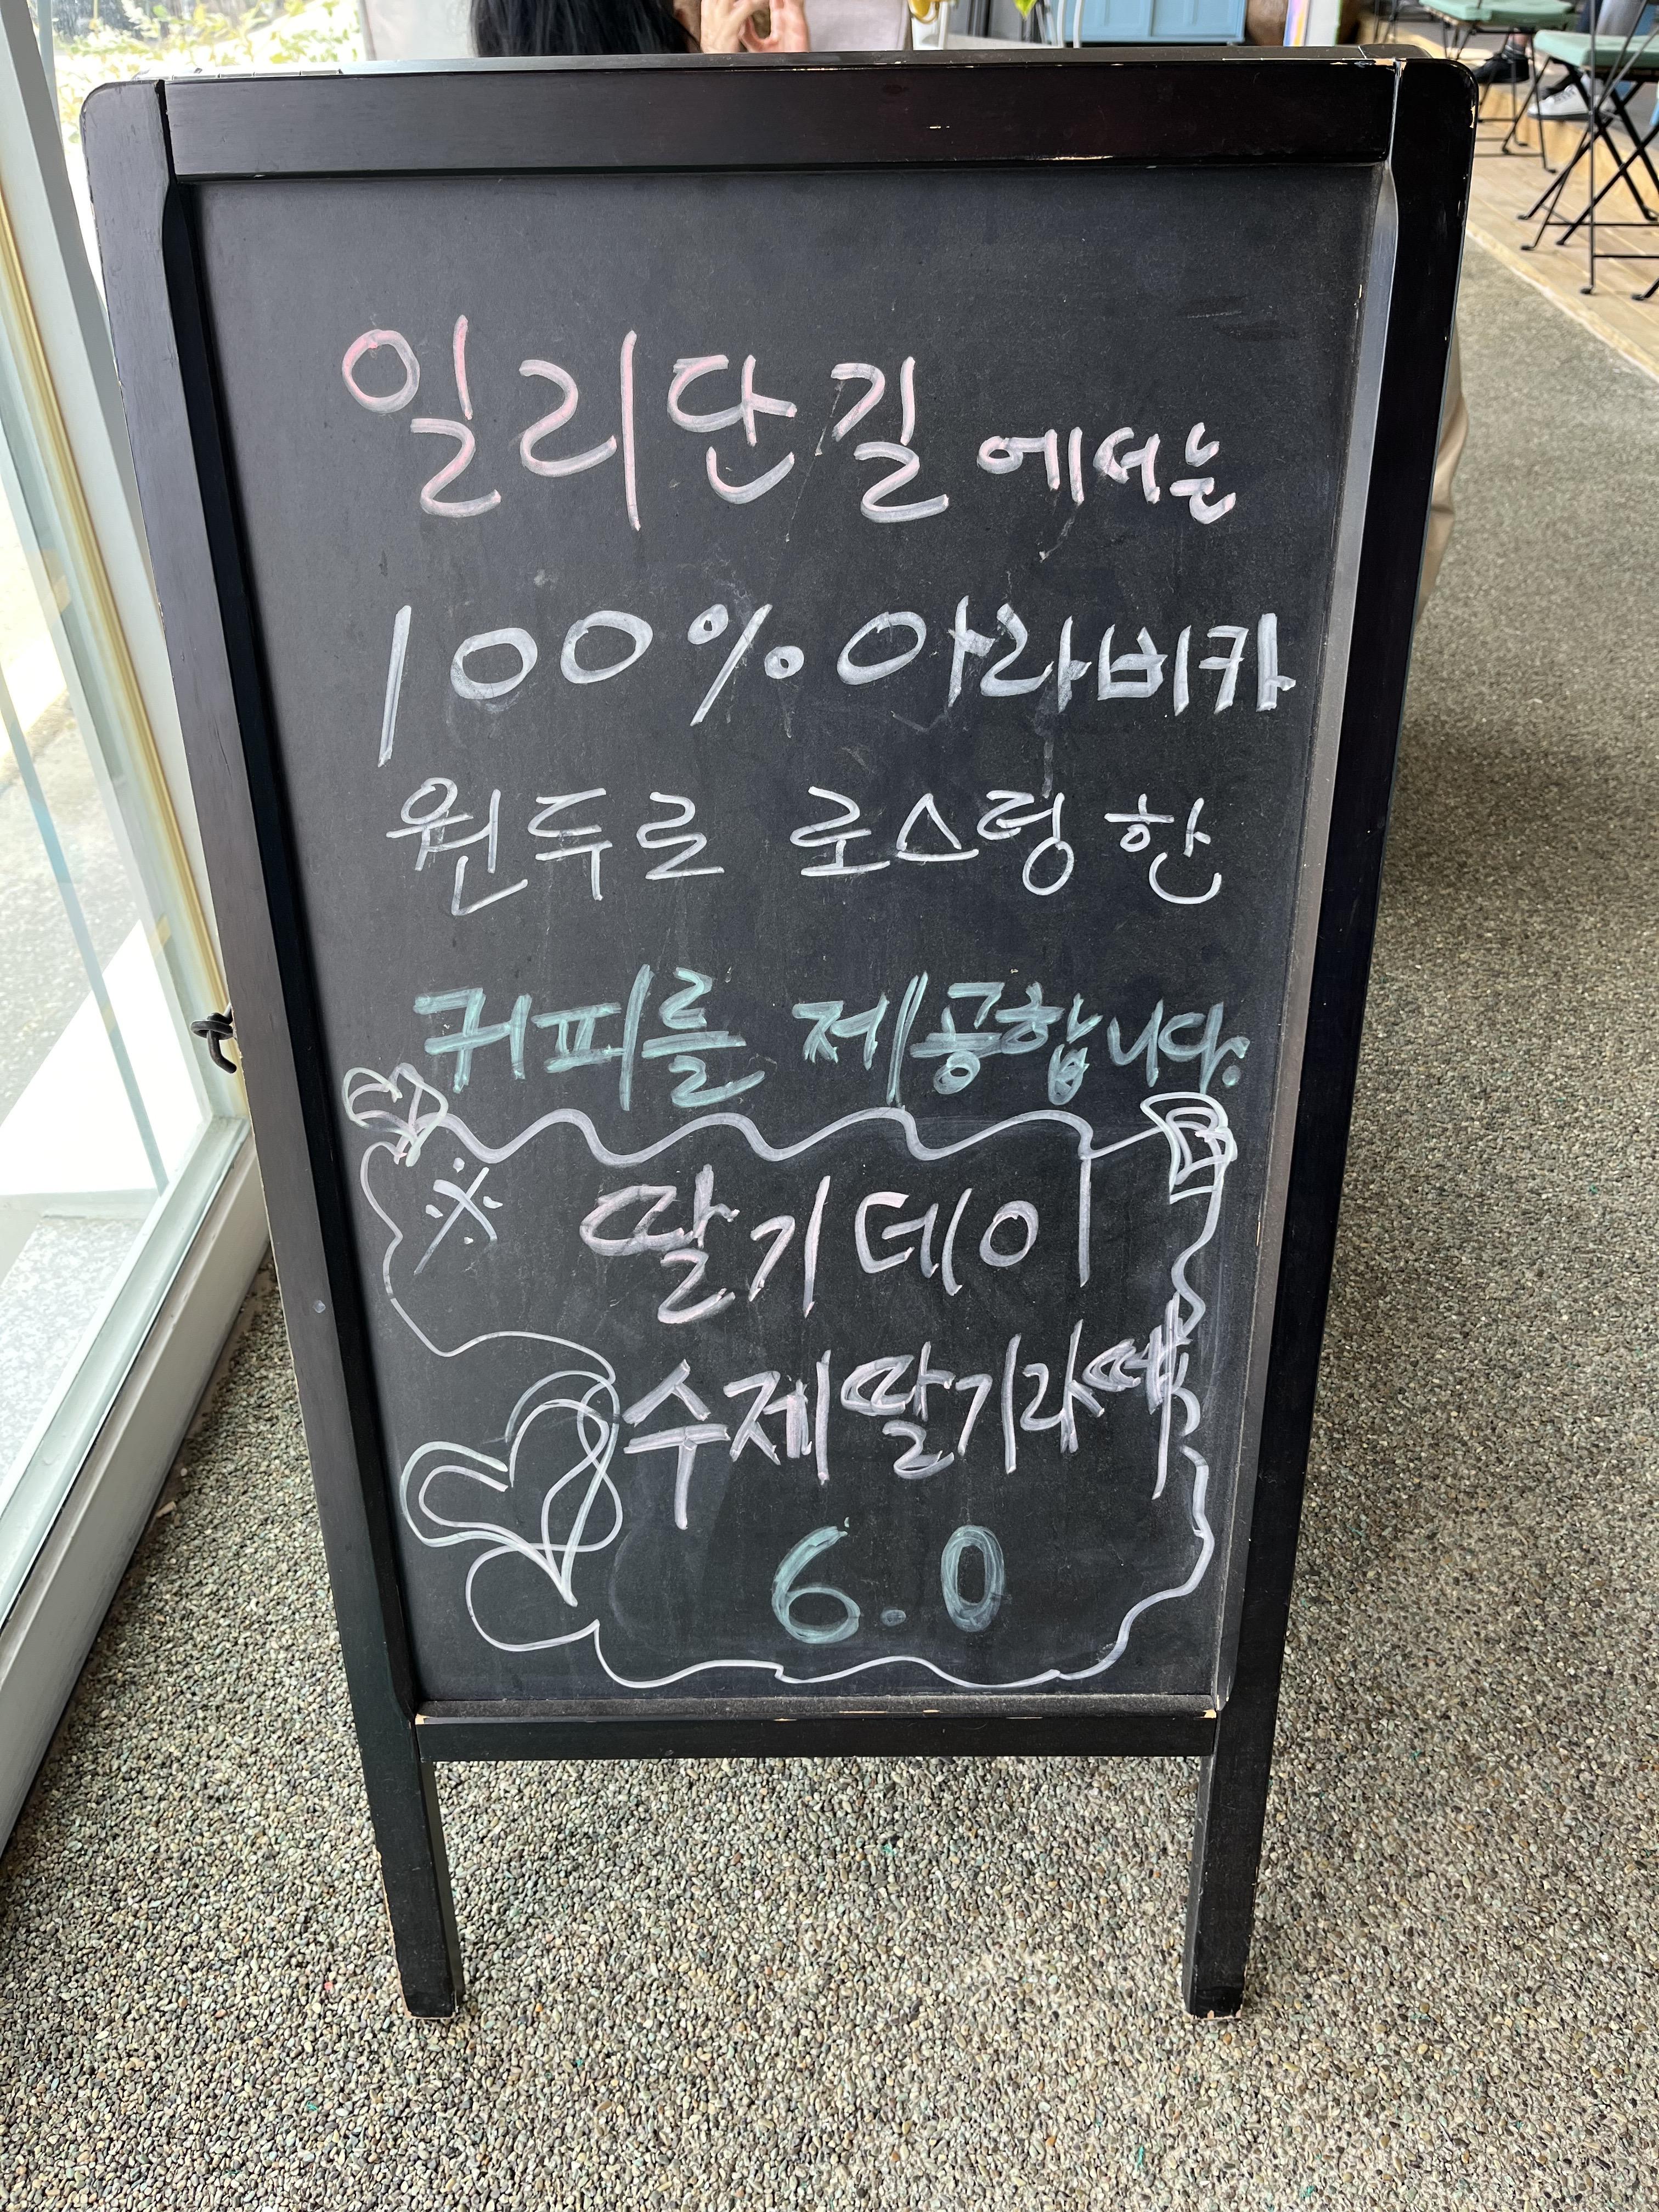 일리단길에서는
100% 아라비카
원두로 로스팅한
커피를 제공합니다.
※ 딸기데이
수제딸기라떼
6.0